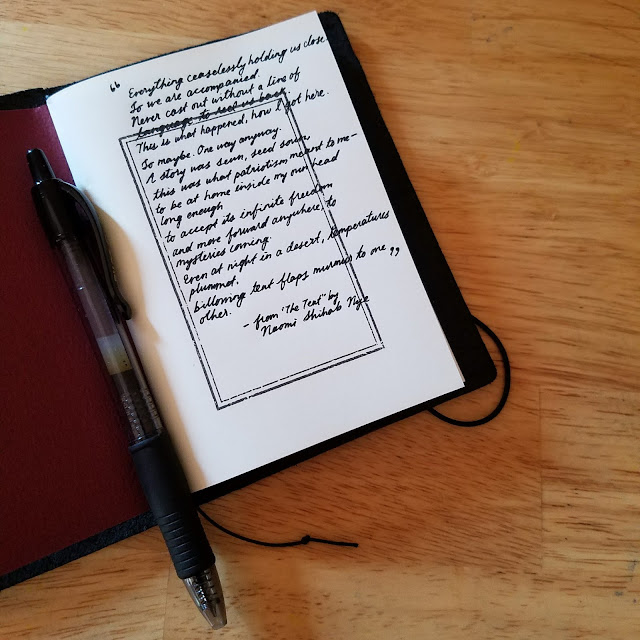 “ Everything ceaselessly holding us close.
So we are accompanied.
Never cast out without a line of
language to reel us back.
This is what happened, how I got here.
So maybe. One way anyway.
A story was sewn, seed sown,
this was what patriotism meant to me—
to be at home inside my own head
long enough
to accept its infinite freedom
and move forward anywhere, to
mysteries coming.
Even at night in a desert, temperatures
plummet,
billowing tent flaps murmur to one ”
other.
- from "The Tent" by
Naomi Shihab Nye